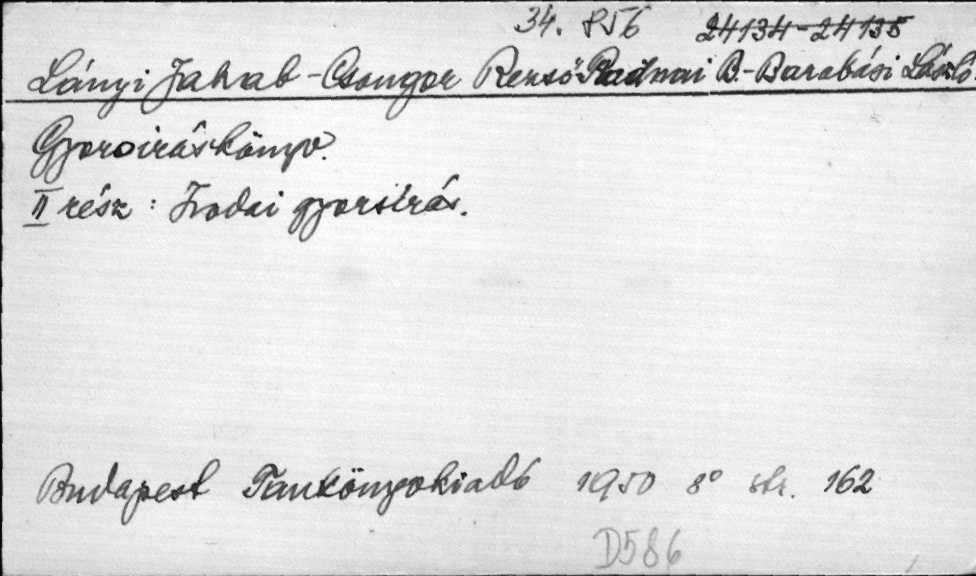 34. 856 24134-24135
Lányi Jakab - Csongor Rezső-Radnai B.-Barabási László
Gyorsíráskönyv.
II rész: Irodai gyorsírás.
Budapest Tankönyvkiadó 1950 8° str. 162
D586